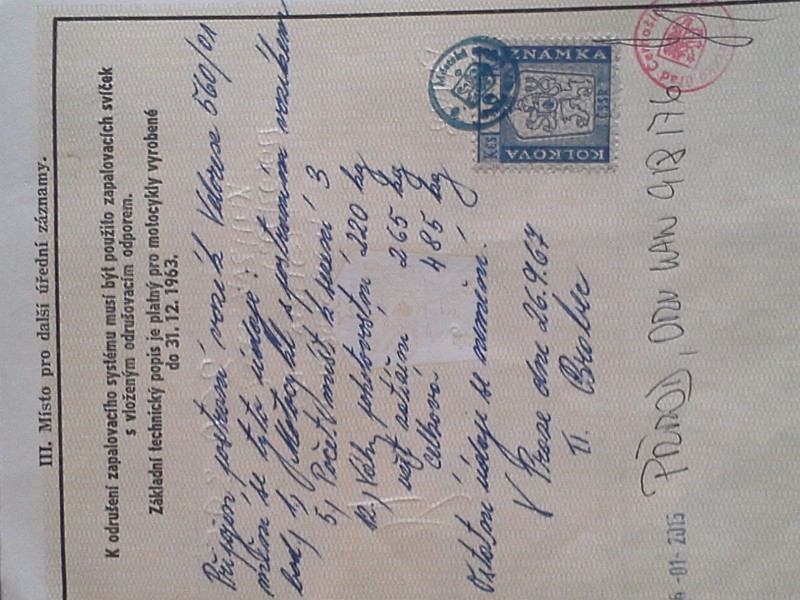 III. Místo pro další úřední záznamy.
K odrušení zapalovacího systému musí být použito zapalovacích svíček
s vloženým odrušovacím odporem.
Základní technický popis je platný pro motocykly vyrobené
do 31. 12. 1963.
Připojen postranní vozík Velorex 560/01
mění se tyto údaje:
bod 1) Motocykl s postranním vozíkem
5) Počet míst k sezení 3
12.) Váhy pohotovostní 220 kg
užit. zatížení 265 kg
celková 485 kg
Ostatní údaje se nemění.
V Praze dne 26.9.67
KOLKOVÁ
ZNÁMKA
ČSSR
5 Kčs
PŮVOD, ODV WAW 918176
-01- 2015